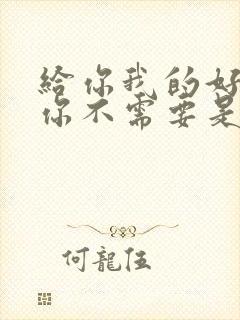 給你我的好
你不需要是
何龍伍